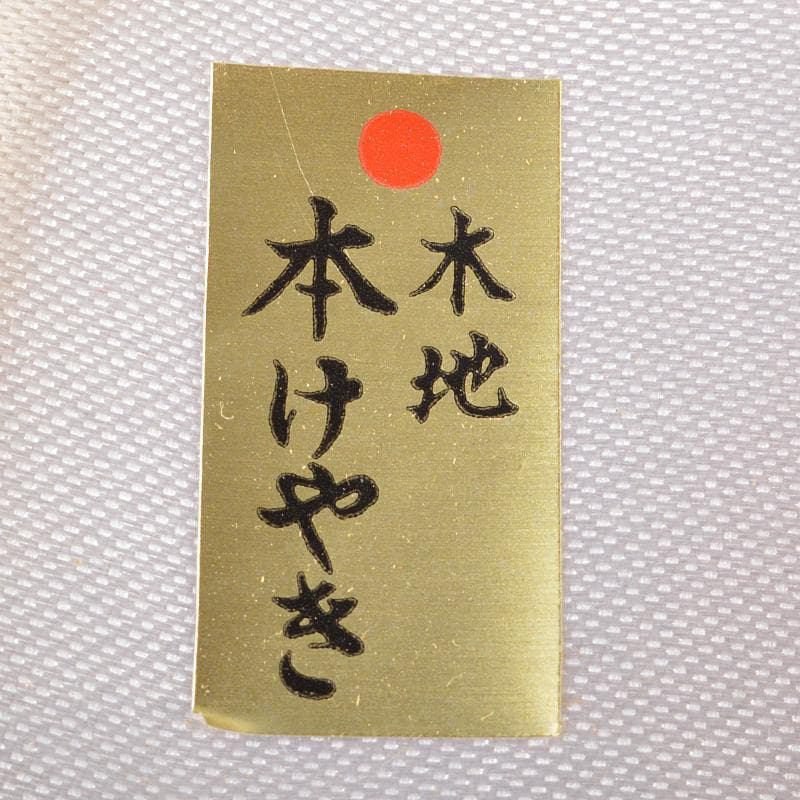 木地
本けやき